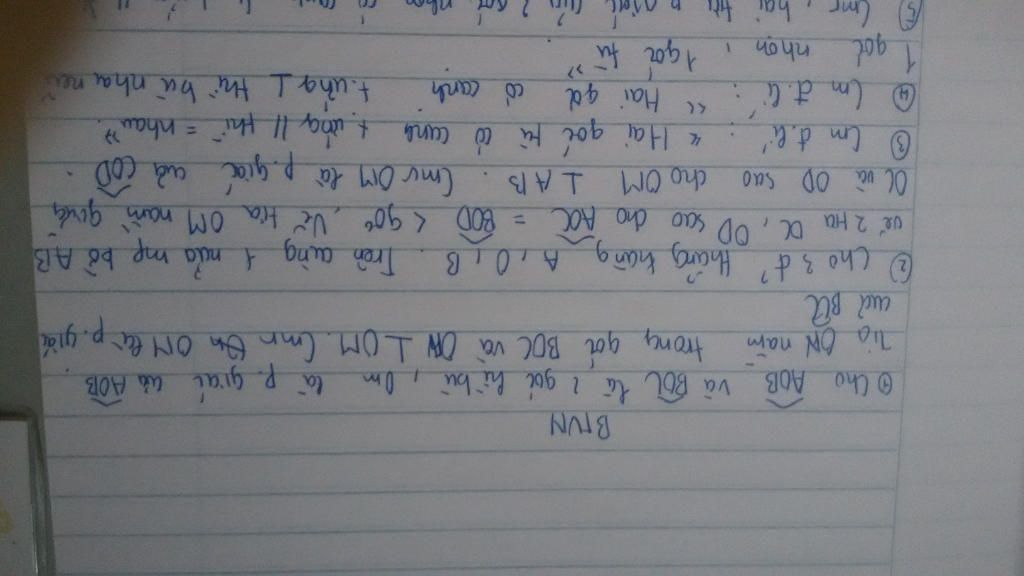 BTVN
① Cho AOB và BOC là 2 góc kề bù, Om là p.giác của AOB
Tia ON nằm trong góc BOC và ON ⊥ OM. Cmr OM là p.giác
của BOC
② Cho 3 đ' thẳng hàng A, O, B. Trên cùng 1 nửa mp bờ AB
vẽ 2 tia OC, OD sao cho AOC = BOD < 90°. Vẽ tia OM nằm giữa
OC và OD sao cho OM ⊥ AB. Cmr OM là p.giác của COD.
③ Cm đ.lí : " Hai góc tù có cạnh t.ứng // thì = nhau ".
④ Cm đ.lí : " Hai góc có cạnh t.ứng ⊥ thì bù nhau nếu
1 góc nhọn, 1 góc tù "
⑤ Cmr, hai tia p.giác của 2 góc nhọn có cạnh